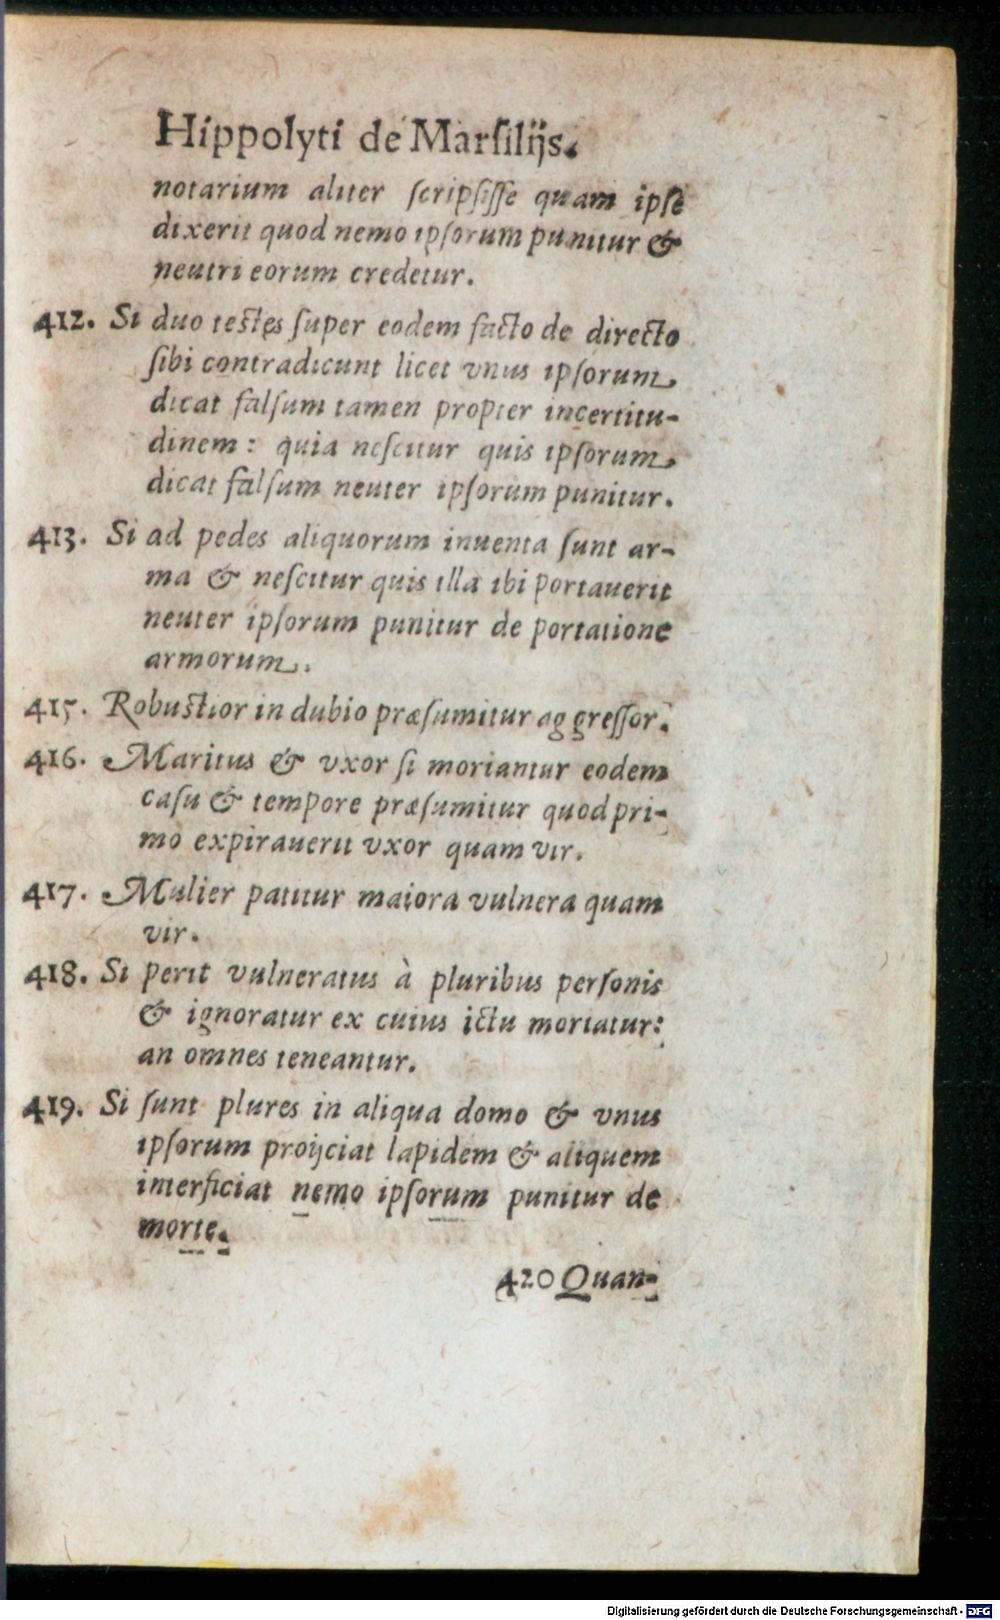 Hippolyti de Marsilijs.
notarium aliter scripsisse quam ipse
dixerit quod nemo ipsorum punitur &
neutri eorum credetur.
412. Si duo testes super eodem facto de directo
sibi contradicunt licet vnus ipsorum
dicat falsum tamen propter incertitu-
dinem: quia nescitur quis ipsorum
dicat falsum neuter ipsorum punitur.
413. Si ad pedes aliquorum inuenta sunt ar-
ma & nescitur quis illa ibi portauerit
neuter ipsorum punitur de portatione
armorum.
415. Robustior in dubio præsumitur aggressor.
416. Maritus & vxor si moriantur eodem
casu & tempore præsumitur quod pri-
mo expirauerit vxor quam vir.
417. Mulier patitur maiora vulnera quam
vir.
418. Si perit vulneratus à pluribus personis
& ignoratur ex cuius ictu moriatur:
an omnes teneantur.
419. Si sunt plures in aliqua domo & vnus
ipsorum proijciat lapidem & aliquem
interficiat nemo ipsorum punitur de
morte.
420 Quan-
Digitalisierung gefördert durch die Deutsche Forschungsgemeinschaft - DFG